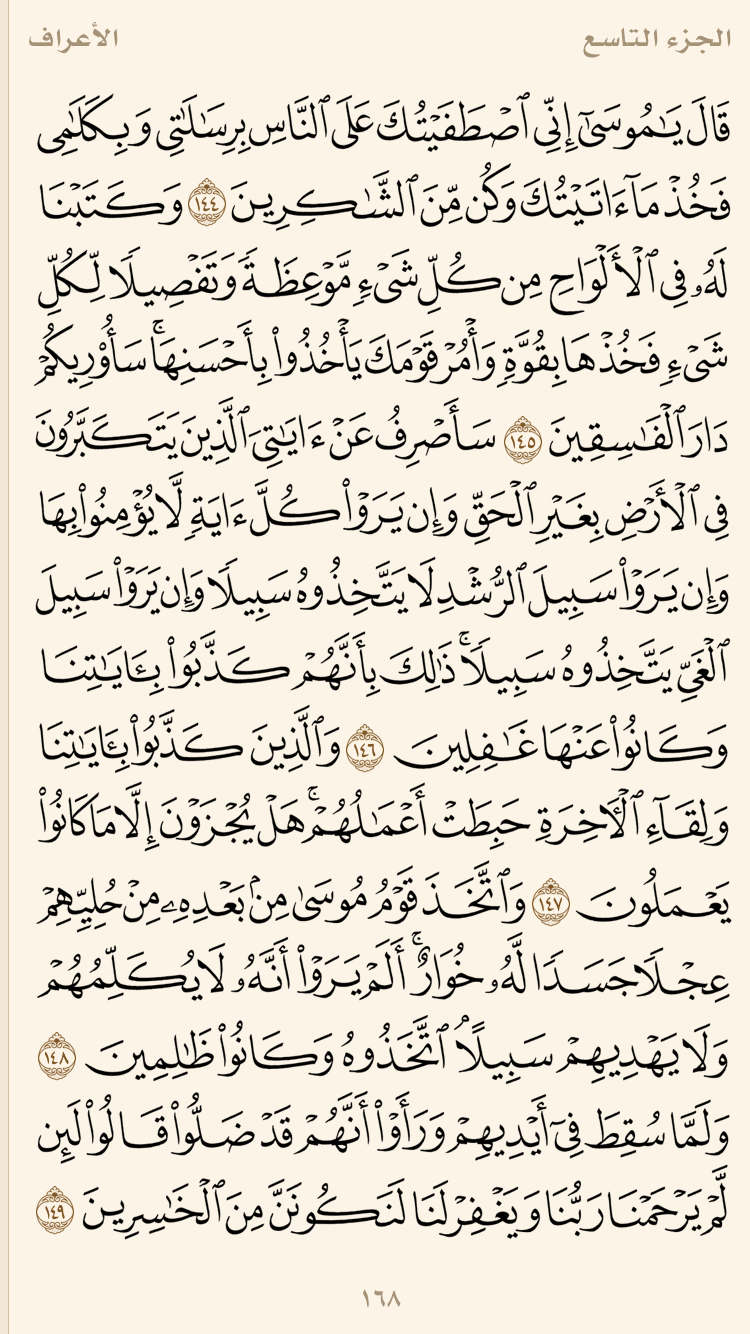 الجزء التاسع
الأعراف
قَالَ يَـٰمُوسَىٰٓ إِنِّى ٱصۡطَفَيۡتُكَ عَلَى ٱلنَّاسِ بِرِسَـٰلَـٰتِى وَبِكَلَـٰمِى
فَخُذۡ مَآ ءَاتَيۡتُكَ وَكُن مِّنَ ٱلشَّـٰكِرِينَ ١٤٤ وَكَتَبۡنَا
لَهُۥ فِى ٱلۡأَلۡوَاحِ مِن كُلِّ شَىۡءٍ مَّوۡعِظَةً وَتَفۡصِيلًا لِّكُلِّ
شَىۡءٍ فَخُذۡهَا بِقُوَّةٍ وَأۡمُرۡ قَوۡمَكَ يَأۡخُذُواْ بِأَحۡسَنِهَاۚ سَأُوْرِيكُمۡ
دَارَ ٱلۡفَـٰسِقِينَ ١٤٥ سَأَصۡرِفُ عَنۡ ءَايَـٰتِىَ ٱلَّذِينَ يَتَكَبَّرُونَ
فِى ٱلۡأَرۡضِ بِغَيۡرِ ٱلۡحَقِّ وَإِن يَرَوۡاْ كُلَّ ءَايَةٍ لَّا يُؤۡمِنُواْ بِهَا
وَإِن يَرَوۡاْ سَبِيلَ ٱلرُّشۡدِ لَا يَتَّخِذُوهُ سَبِيلًا وَإِن يَرَوۡاْ سَبِيلَ
ٱلۡغَىِّ يَتَّخِذُوهُ سَبِيلًاۚ ذَٰلِكَ بِأَنَّهُمۡ كَذَّبُواْ بِـَٔايَـٰتِنَا
وَكَانُواْ عَنۡهَا غَـٰفِلِينَ ١٤٦ وَٱلَّذِينَ كَذَّبُواْ بِـَٔايَـٰتِنَا
وَلِقَآءِ ٱلۡأَخِرَةِ حَبِطَتۡ أَعۡمَـٰلُهُمۡۚ هَلۡ يُجۡزَوۡنَ إِلَّا مَا كَانُواْ
يَعۡمَلُونَ ١٤٧ وَٱتَّخَذَ قَوۡمُ مُوسَىٰ مِنۢ بَعۡدِهِۦ مِنۡ حُلِيِّهِمۡ
عِجۡلًا جَسَدًا لَّهُۥ خُوَارٌۚ أَلَمۡ يَرَوۡاْ أَنَّهُۥ لَا يُكَلِّمُهُمۡ
وَلَا يَهۡدِيهِمۡ سَبِيلًاۘ ٱتَّخَذُوهُ وَكَانُواْ ظَـٰلِمِينَ ١٤٨
وَلَمَّا سُقِطَ فِىٓ أَيۡدِيهِمۡ وَرَأَوۡاْ أَنَّهُمۡ قَدۡ ضَلُّواْ قَالُواْ لَئِن
لَّمۡ يَرۡحَمۡنَا رَبُّنَا وَيَغۡفِرۡ لَنَا لَنَكُونَنَّ مِنَ ٱلۡخَـٰسِرِينَ ١٤٩
١٦٨